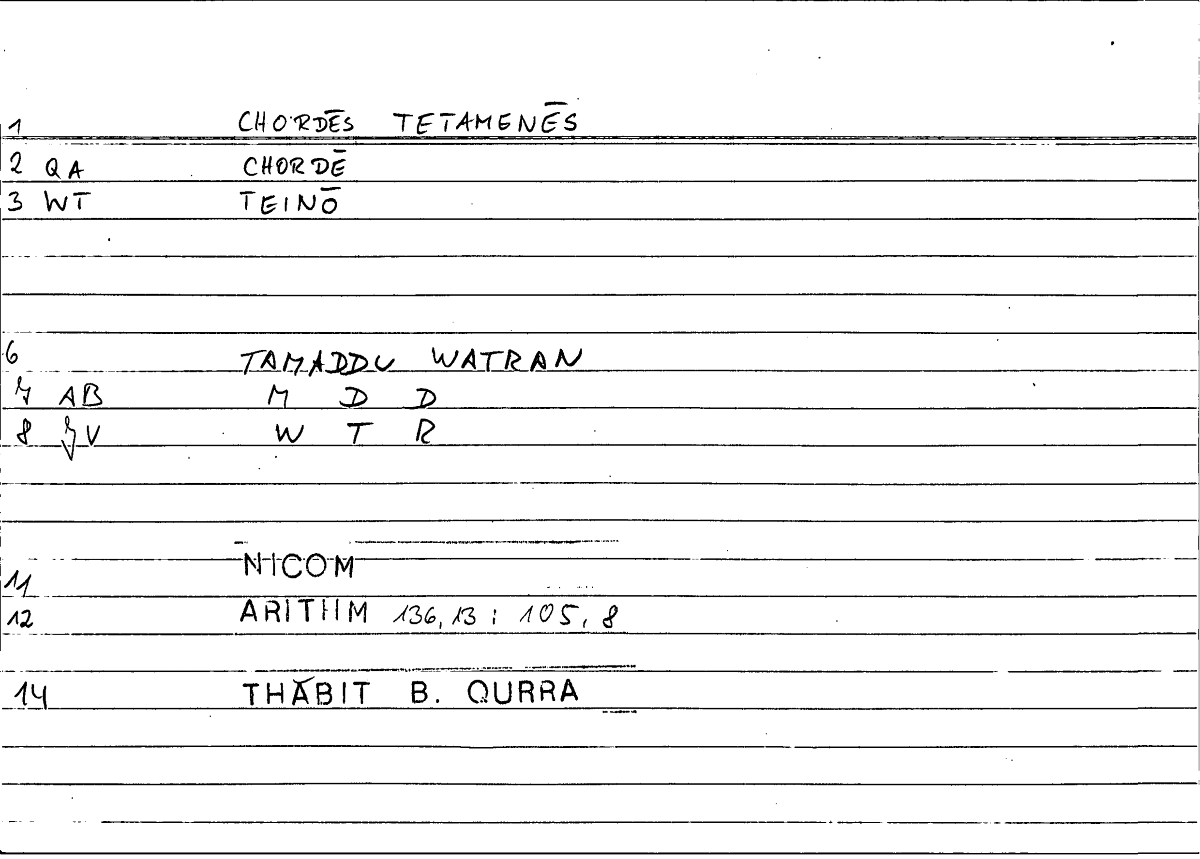 1 CHORDĒS TETAMENĒS
2 QA CHORDĒ
3 WT TEINŌ
6 TAMADDU WATRAN
7 AB M D D
8 V W T R
11 NICOM
12 ARITHM 136,13 ; 105, 8
14 THĀBIT B. QURRA